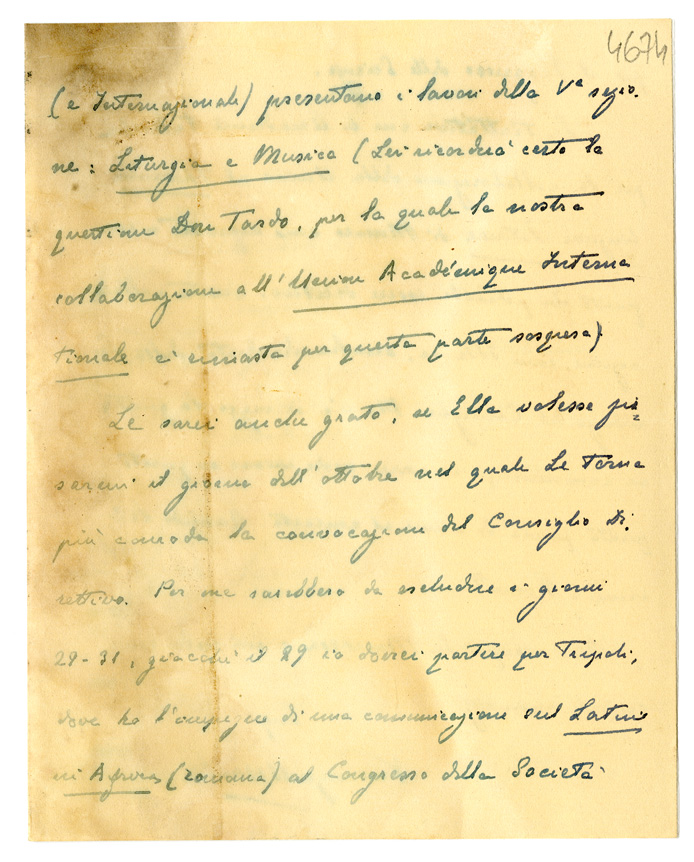 4674
(e Internazionali) presentano i lavori della Vª sezio-
ne: Liturgia e Musica (Lei ricorderà certo la
questione Don Tardo, per la quale la nostra
collaborazione all'Union Académique Interna
tionale è rimasta per questa parte sospesa)
Le sarei anche grato, se Ella volesse pre=
sarmi il giorno dell'ottobre nel quale Le torna
più comoda la convocazione del Consiglio Di-
rettivo. Per me sarebbero da escludere i giorni
28-31, giacchè il 29 io dovrei partire per Tripoli,
dove ho l'impegno di una comunicazione sul Latini
in Africa (romana) al Congresso della Società